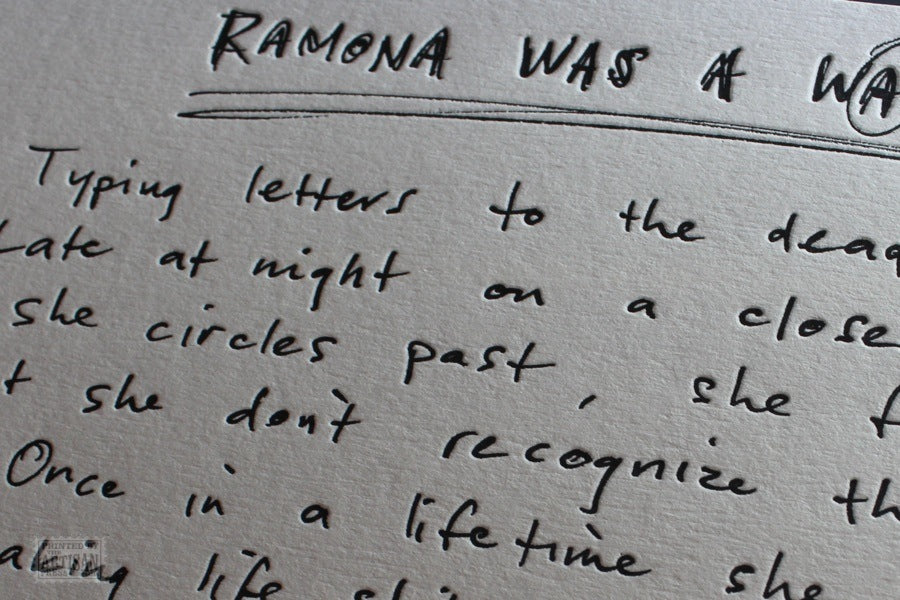 RAMONA WAS A WA
Typing letters to the dead
Late at night on a close
she circles past, she f
t she don't recognize th
Once in a lifetime she
life
PRINTED BY
ARTISAN
PRESS